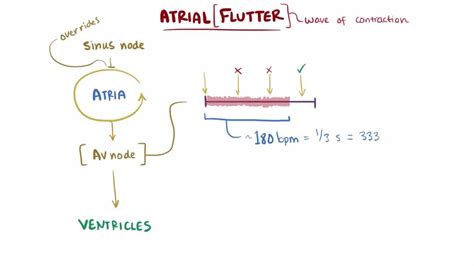 ATRIAL [FLUTTER] wave of contraction
overrides
Sinus node
ATRIA
x x ✓
~180 bpm = 1/3 s = 333
[AV node]
VENTRICLES